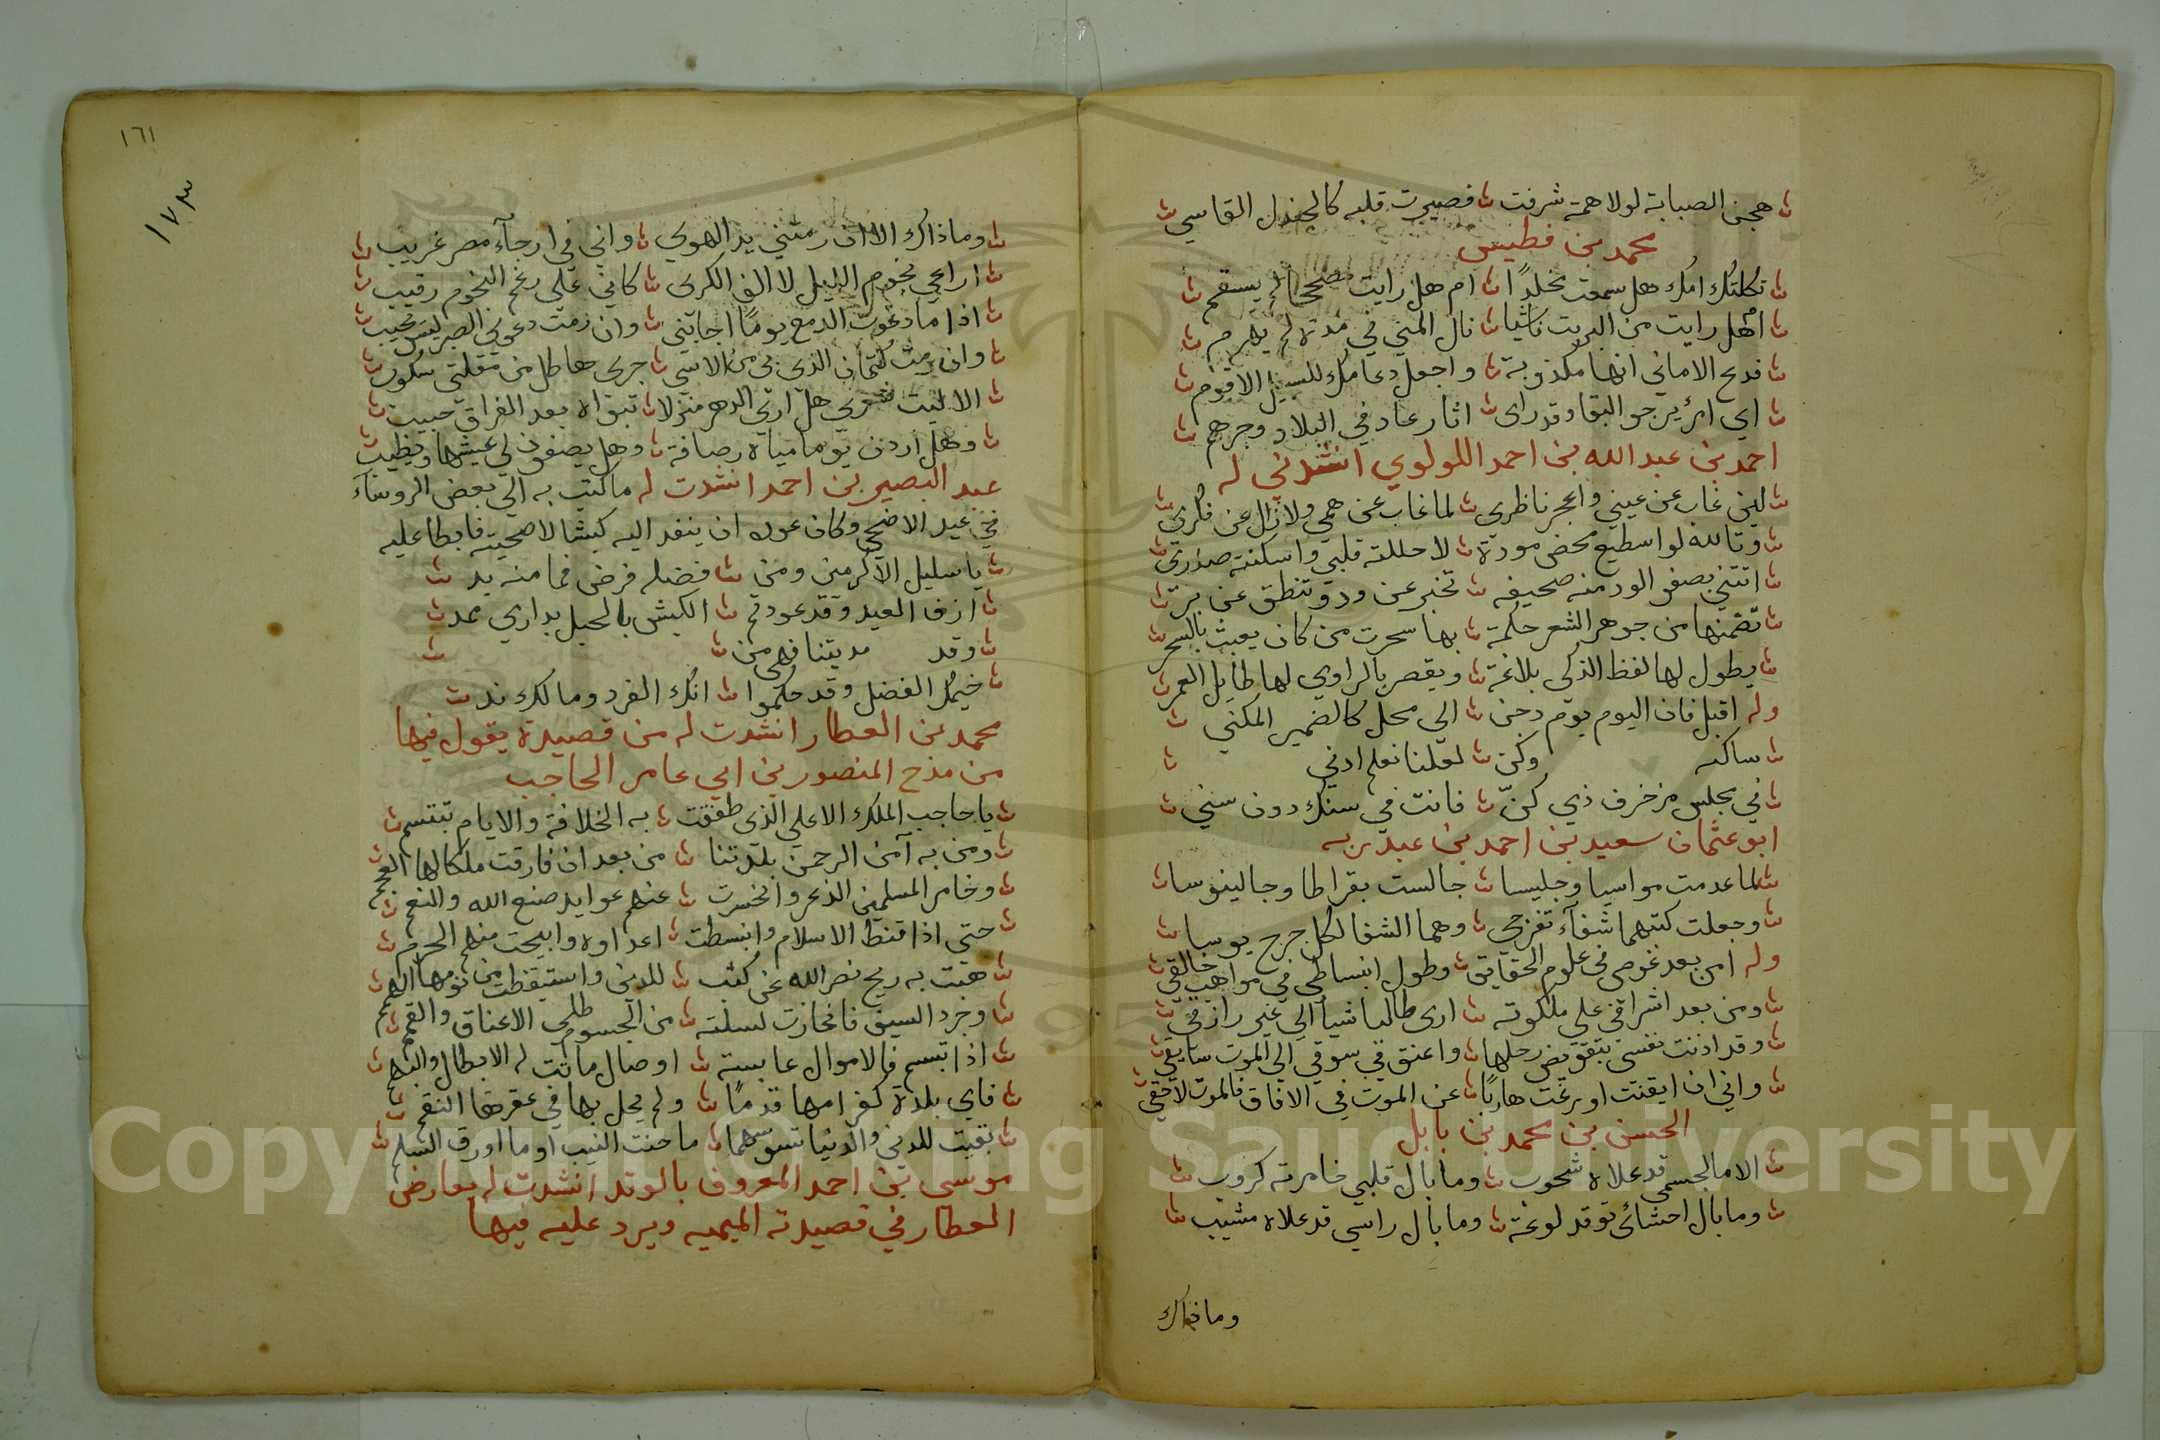 هجن الصبابة لولا همة شرفت فصيرت قلبه كالجندل القاسي
محمد بن فطيس
ثكلتك امك هل سمعت مخلدًا ام هل رايت مصححا لم يسقم
ام هل رايت من البريت ناشيا نال المني في مدة لم يهرم
فدع الاماني انها مكذوبة واجعل دعامك للسبيل الاقوم
اي امرئ يرجو البقا وقد راى اثار عاد في البلاد وجرهم
احمد بن عبد الله بن احمد اللولوي انشدني له
لين غاب عن عيني واعجز ناظري لما غاب عن همي ولا زل عن فكري
وتالله لو اسطيع محض مودة لاحللته قلبي واسكنته صدري
اتتني بصفو الود منه صحيفه تخبر عن ود وتنطق عن بر
تضمنها من جوهر الشعر حكمة بها سحرت من كان يعبث بالسحر
يطول لها لفظ الذكي بلاغة ويقصر بالراوي لها طايل العمر
وله اقبل فان اليوم يوم دجن الي محل كالضمير المكني
ساكنه وكن لعلنا نعلم ادني
في مجلس مزخرف ذي كنّ فانت في سنك دون سني
ابو عثمان سعيد بن احمد بن عبد ربه
لما عدمت مواسيا وجليسا جالست بقراطا وجالينوسا
وجعلت كتبهما شفآء تفرجي وهما الشفا لكل جرح يوسا
وله امن بعد غوصي في علوم الحقايق وطول انبساطي في مواهب خالقي
ومن بعد اشرافي علي ملكوته ارى طالبا شيا الي غير رازقي
وقد اذنت نفسي بتقويض رحلها واعنق في سوقي الي الموت سايقي
واني ان ايقنت او رغت هاربًا عن الموت في الافاق فالموت لاحقي
الحسن بن محمد بن بابل
الا ما لجسمي قد علاه شحوب وما بال قلبي خامرته كروب
وما بال احشائى توقد لوعة وما بال راسي قد علاه مشيب
وما ذاك
١٦١
١٧٣
وما ذاك الا ان رمتني يد الهوي واني في ارجآء مصر غريب
اراعي نجوم الليل لا الف الكرى كاني علي رغم النجوم رقيب
اذا ما دعوت الدمع يومًا اجابني وان رمت دعوي الصبر ليس يجيب
وان رمت كتمان الذي بي من الاسي جرى هاطل من مقلتي سكوب
الا ليت شعري هل ارتي الدهر منزلا تبواه بعد الفراق حبيب
وهل اردن يوما مياه رصافة وهل يصفون لي عيشها ويطيب
عبد البصير بن احمد انشدت له ما كتب به الي بعض الروساء
في عيد الاضحي وكان عوده ان ينفد اليه كبشا لاضحيته فابطا عليه
يا سليل الاكرمين ومن فضله فرض فما منه بد
ازف العيد وقد عودتم الكبش بالحبل بداري يمد
وقد مديتنا فهي من
خيمك الفضل وقد حكموا انك الفرد وما لك ند
محمد بن العطار انشدت له من قصيدة يقول فيها
من مدح المنصور بن ابي عامر الحاجب
يا حاجب الملك الاعلي الذى طفقت به الخلافة والايام تبتسم
ومن به آمن الرحمن بلدتنا من بعد ان فارقت ملكا لها العجم
وخامر المسلمين الذعر وانحسرت عنهم عوايد صنع الله والنعم
حتى اذا قنط الاسلام وانبسطت اعداوه وابيحت منهم الحرم
هبت به ريح نصر الله عن كثب للدين واستيقظت من نومها الهمم
وجرد السيف فانحازت لسلته من الجسوم طلي الاعناق والقمم
اذا تبسم فالاموال عابسة او صال ماتت له الابطال والبهم
فاي بلدة كفر امها قدمًا ولم يحل بها في عقرها النقم
بقيت للدين والدنيا تسوسهما ما حنت النيب او ما اورق السلم
موسى بن احمد المعروف بالوتد انشدت له يعارض
العطار في قصيدته الميميه ويرد عليه فيها